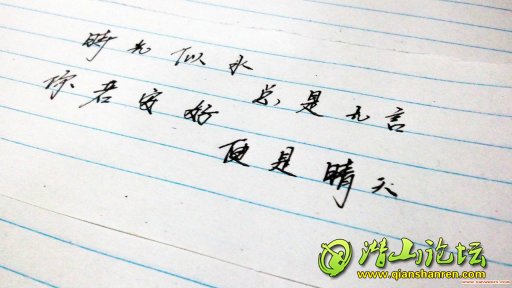 时光似水
总是无言
你若安好
便是晴天
潜山论坛
www.qianshanren.com